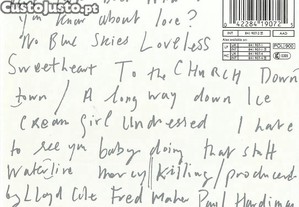 CustoJusto.pt
you know about love?
No Blue Skies Loveless
Sweetheart To the CHURCH Down
town / A long way down Ice
Cream Girl Undressed I have
to see you baby doing that stuff
Waterline Mercy/Killing/produced
by Lloyd Cole Fred Maher Paul Hardiman
0 42284 19072